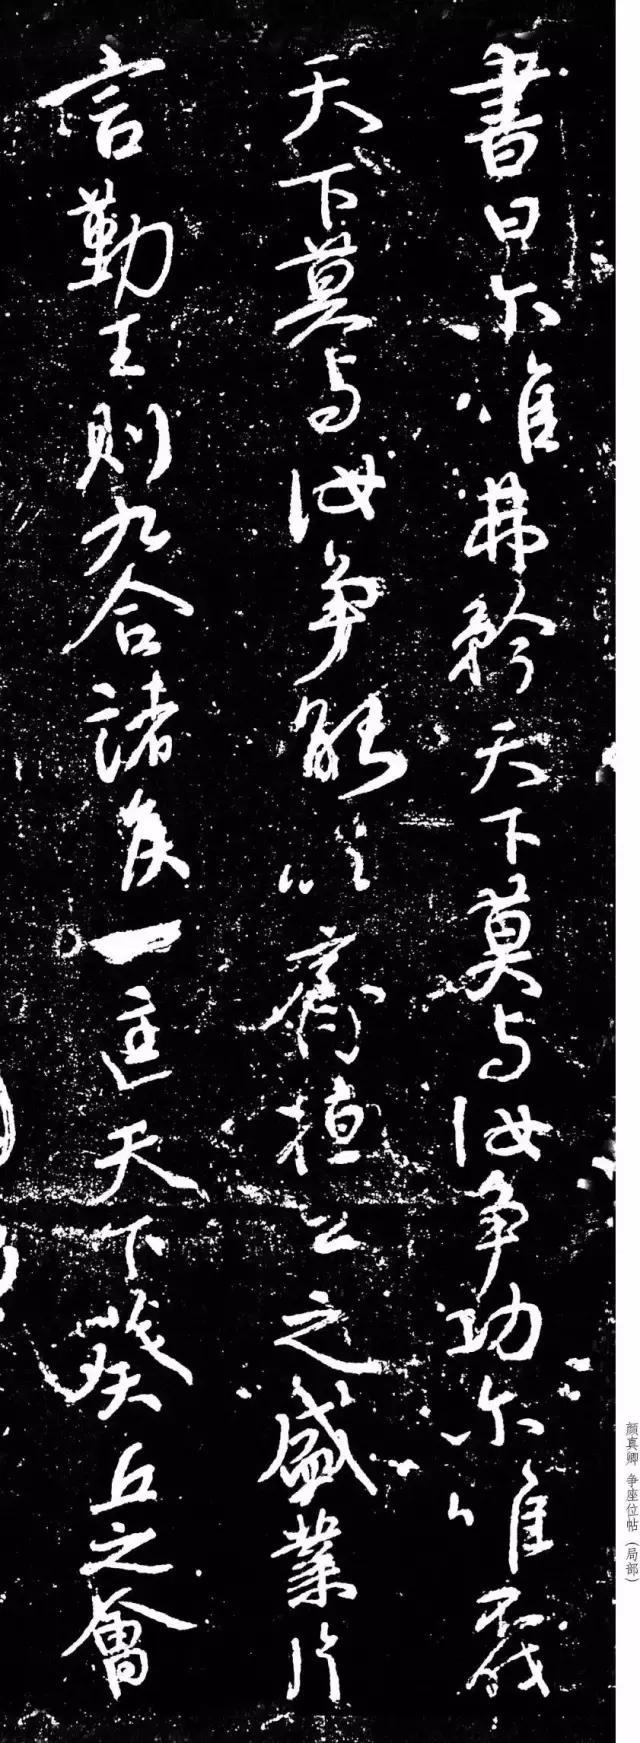 書曰尔唯弗矜天下莫与汝争功尔唯不伐
天下莫与汝争能以齊桓公之盛業片
言勤王則九合諸侯一匡天下葵丘之會
颜真卿 争座位帖（局部）